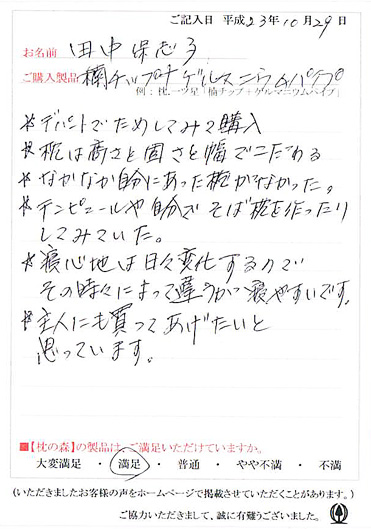 ご記入日 平成23年10月29日
お名前 田中保志子
ご購入製品 楠チップ+ゲルマニウムパイプ
例:枕一ツ星「楠チップ+ゲルマニウムパイプ」
*デパートでためしてみて購入
*枕は高さと固さと幅でこだわる
*なかなか自分にあった枕がなかった。
*テンピュールや自分でそば枕を作ったり
してみていた。
*寝心地は日々変化するので
その時々によって違うが寝やすいです。
*主人にも買ってあげたいと
思っています。
■【枕の森】の製品は、ご満足いただけていますか。
大変満足 ・ 満足 ・ 普通 ・ やや不満 ・ 不満
(いただきましたお客様の声をホームページで掲載させていただくことがあります。)
ご協力いただきまして、誠に有難うございました。